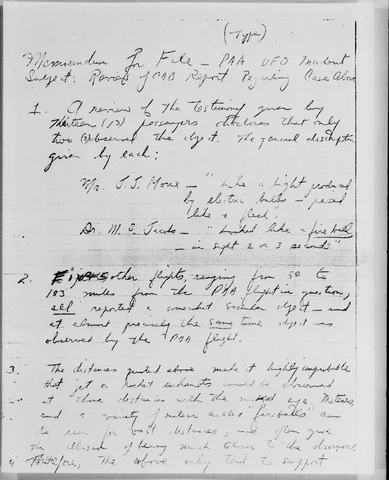 (Type)
Memorandum for File – PAA UFO Incident
Subject: Review of CAB Report Regarding Case Above
1. A review of the testimony given by
thirteen (13) passengers discloses that only
two (2) observed the object. The general description
given by each:
Mr. J.J. – "Like a light produced
by electric bulbs – passed
like a flash."
Dr. M.S. Jacobs – "Looked like a fire ball
– in sight 2 or 3 seconds"
2. other flights, ranging from 50 to
183 miles from the PAA flight in question,
all reported a somewhat similar object – and
at almost precisely the same time object was
observed by the PAA flight.
3. The distances quoted above make it highly improbable
that jet or rocket exhausts would be observed
at these distances with the naked eye. Meteors
and a variety of meteor called "fireballs" can
be seen for vast distances, and often give
the illusion of being much closer to the observer.
Therefore, the above only tend to support